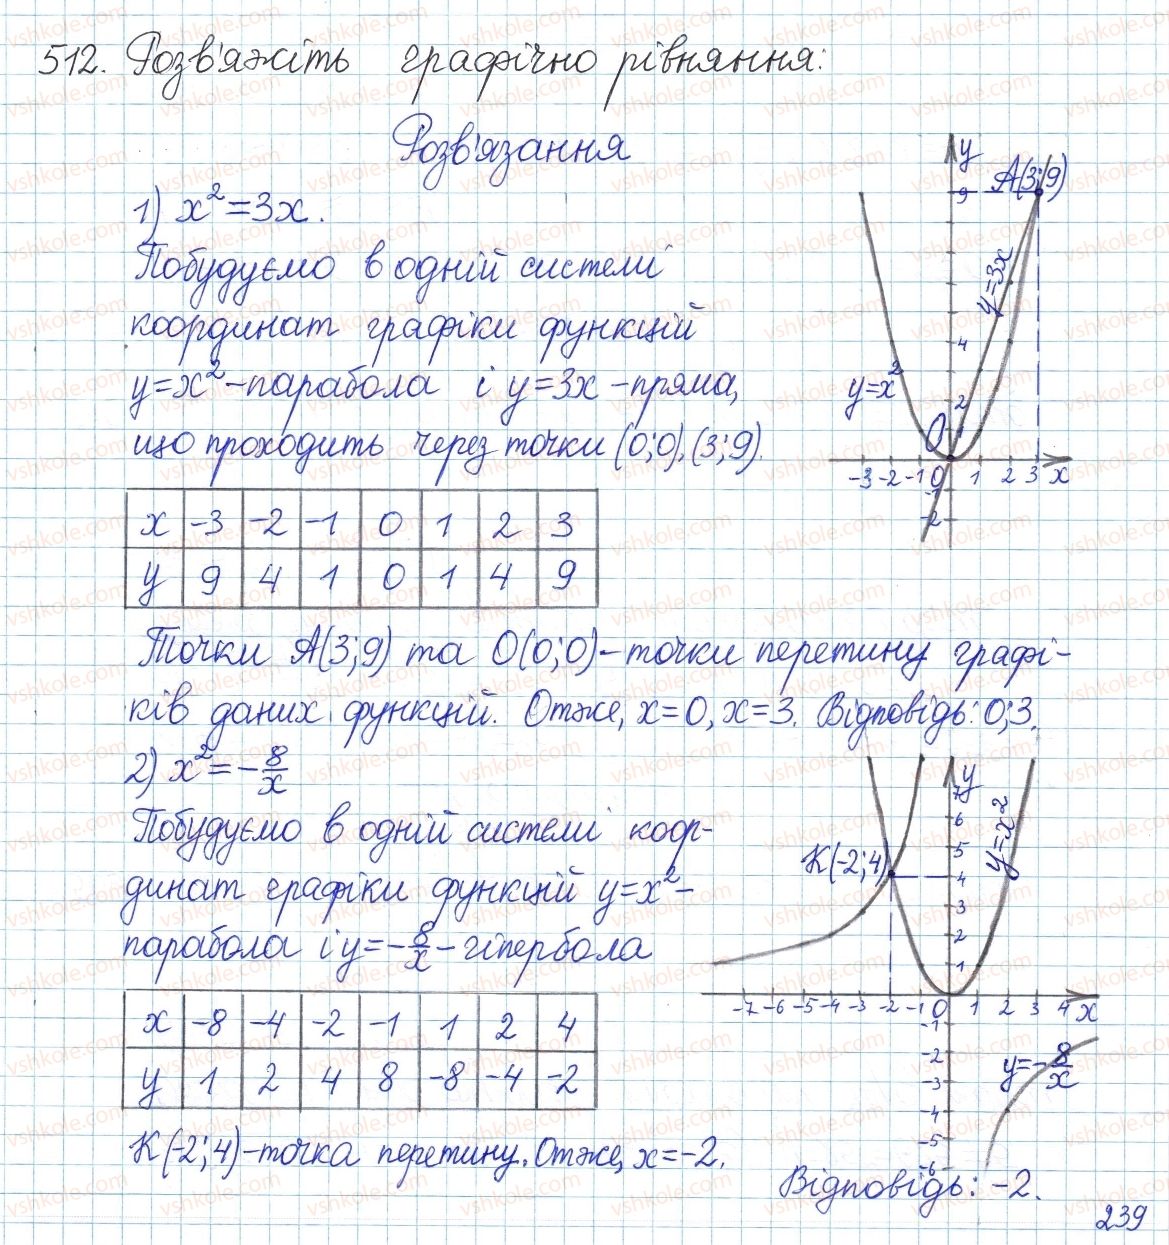 512. Розв'яжіть графічно рівняння:
Розв'язання
1) x²=3x.
Побудуємо в одній системі
координат графіки функцій
y=x²-парабола і y=3x-пряма,
що проходить через точки (0;0), (3;9).
x -3 -2 -1 0 1 2 3
y 9 4 1 0 1 4 9
y
A(3;9)
9
y=3x
4
y=x²
2
1
O
-3 -2 -1 0 1 2 3 x
-1
-2
Точки A(3;9) та O(0;0)-точки перетину графі-
ків даних функцій. Отже, x=0, x=3. Відповідь: 0;3.
2) x²=-8/x
Побудуємо в одній системі коор-
динат графіки функцій y=x²-
парабола і y=-8/x-гіпербола
x -8 -4 -2 -1 1 2 4
y 1 2 4 8 -8 -4 -2
y
7
6
5
K(-2;4)
y=x²
4
3
2
1
-7 -6 -5 -4 -3 -2 -1 0 1 2 3 4 x
-1
-2
y=-8/x
-3
-4
-5
-6
K(-2;4)-точка перетину. Отже, x=-2.
Відповідь: -2.
239
vshkole.com